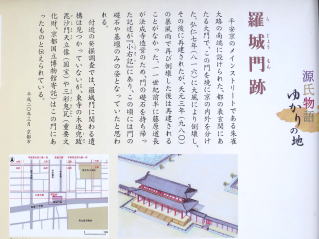 源氏物語
ゆかりの地
羅城門跡
らじょうもん
平安京のメインストリートである朱雀
大路の南端に設けられた、都の表玄関にあ
たる大門で、この門を境に京の内外を分け
た。弘仁七年(八一六)に大風により倒壊し、
その後に再建されたが天元三年(九八〇)
の暴風雨で再び倒壊し、以後は再建される
ことがなかった。十一世紀前半に藤原道長
が法成寺造営のため、門の礎石を持ち帰っ
た記述が『小右記』にあり、この頃には門の
礎石や基壇のみの姿となっていたと思わ
れる。
付近の発掘調査では、羅城門に関わる遺
構は見つかっていないが、東寺の木造兜跋
毘沙門天立像(国宝)や三彩鬼瓦(重要文
化財、京都国立博物館寄託)はこの門にあ
ったものと伝えられている。
平成二〇年三月 京都市